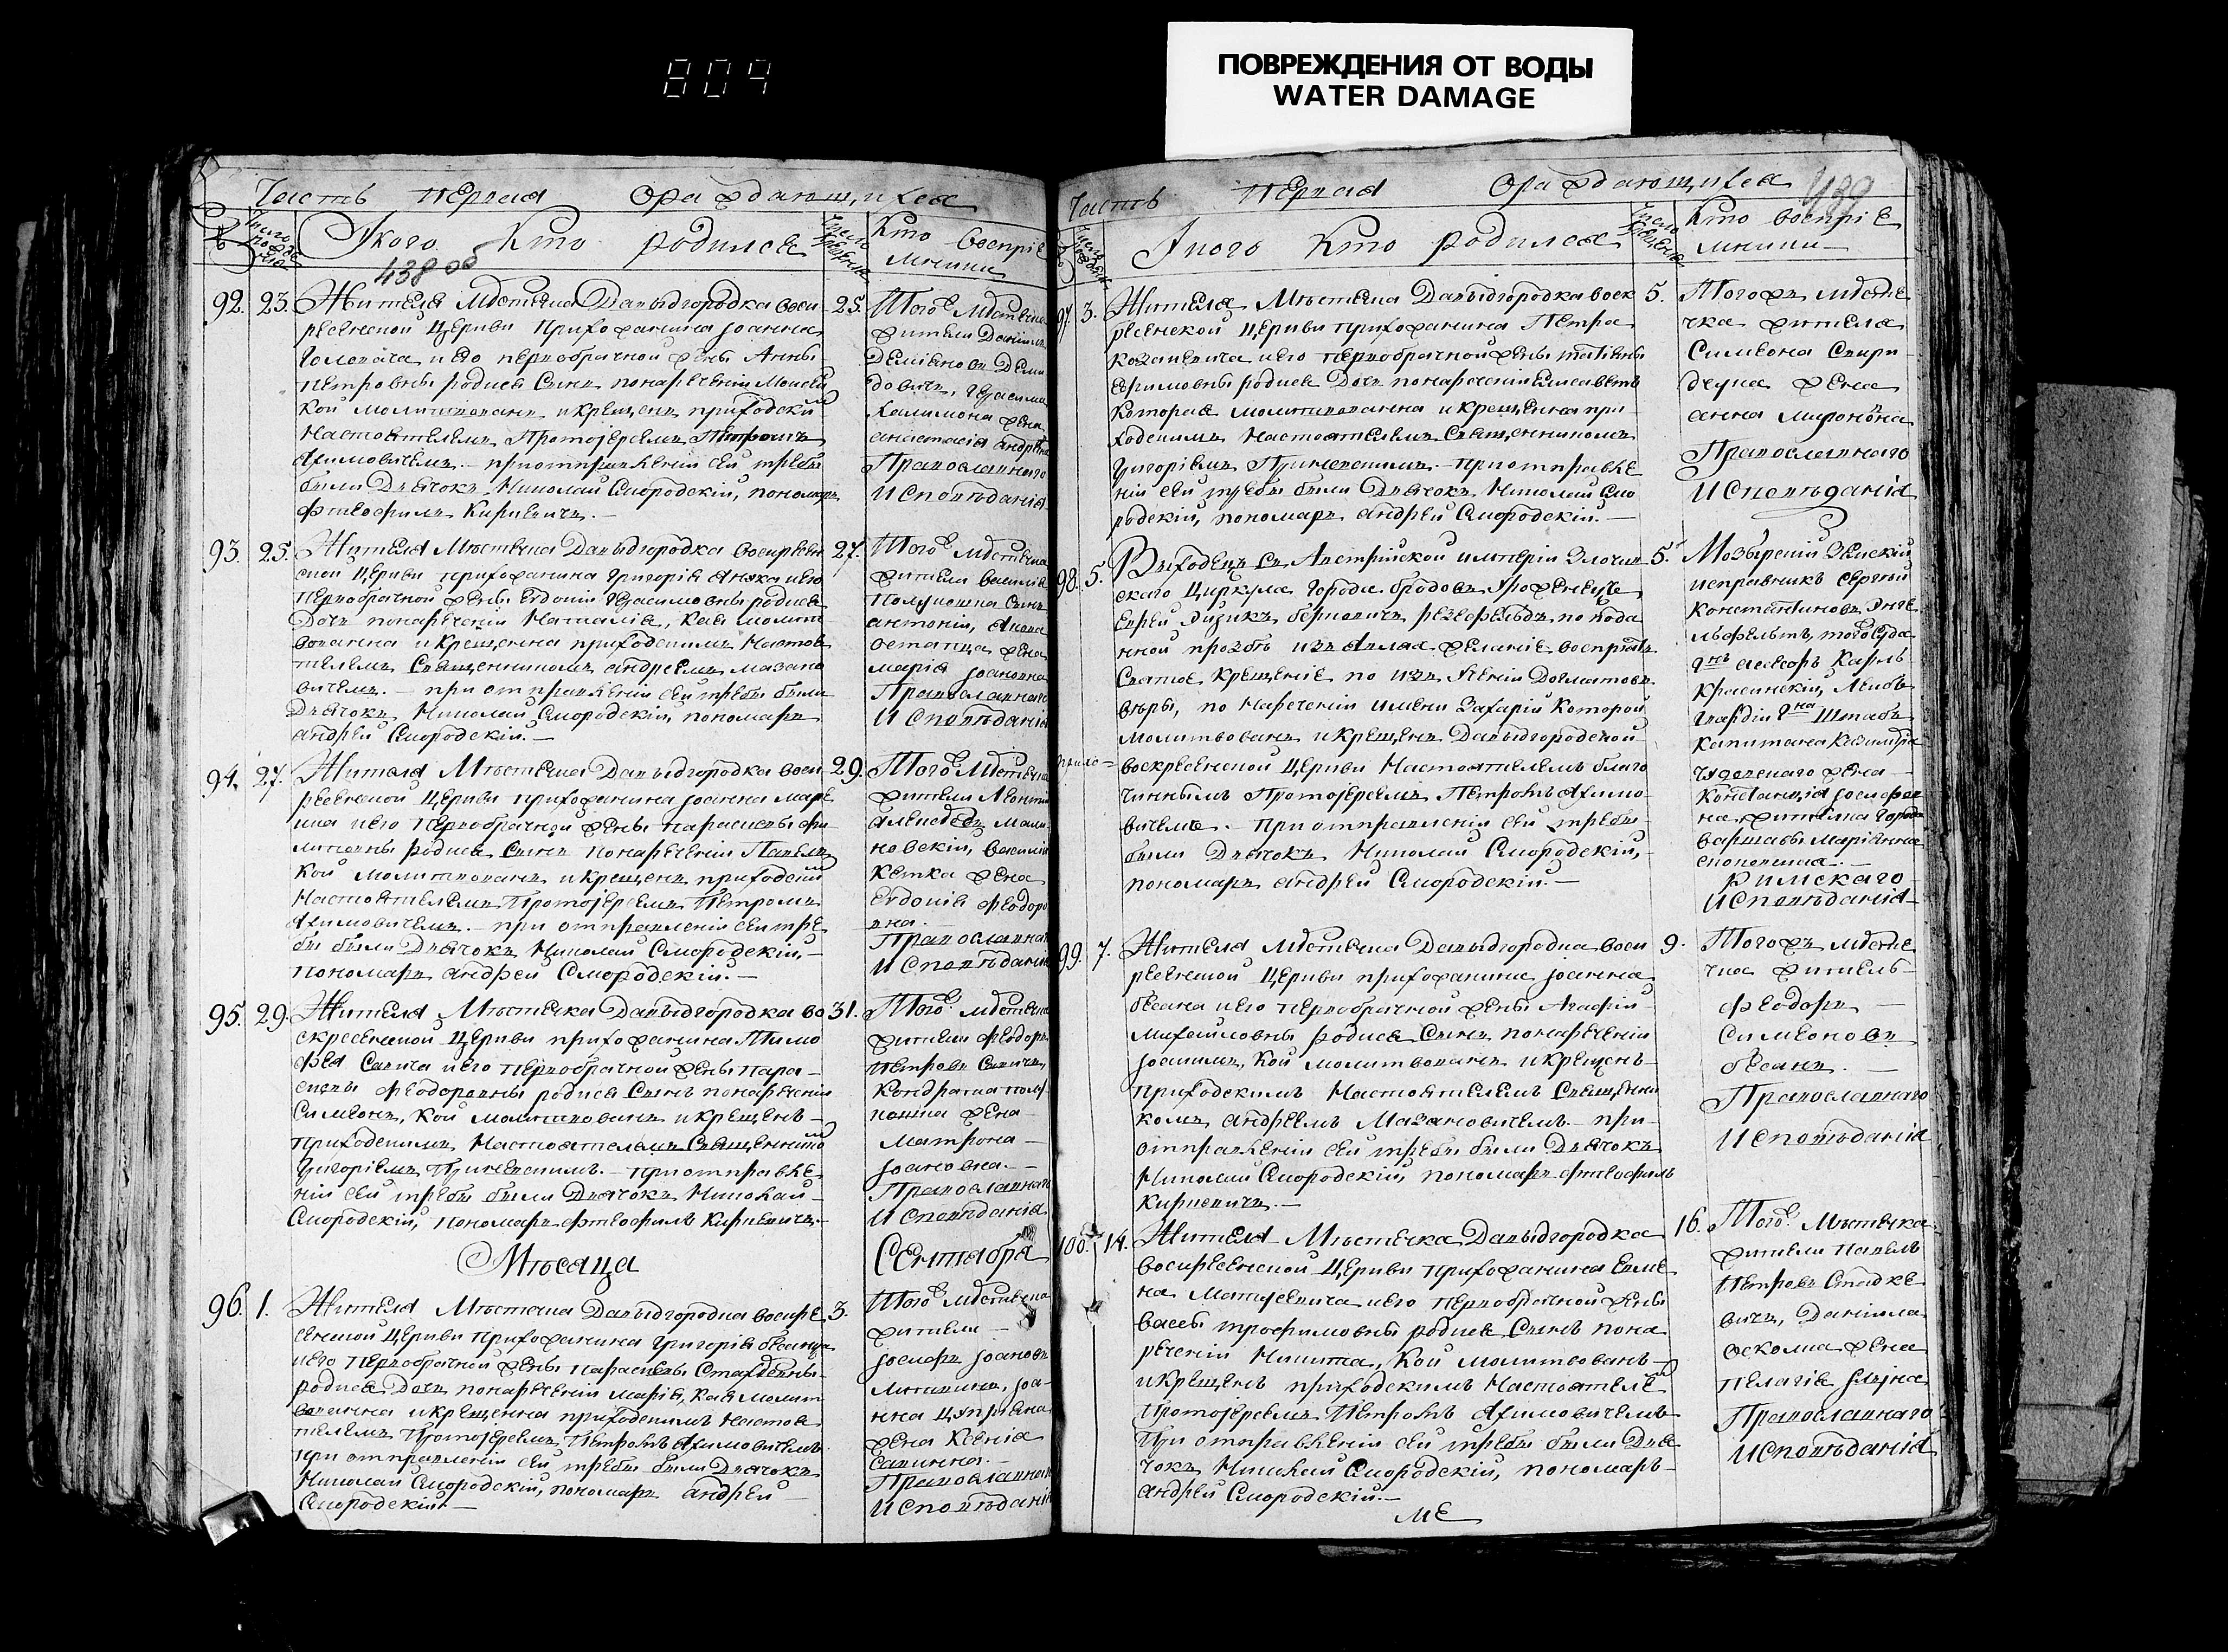 809
ПОВРЕЖДЕНИЯ ОТ ВОДЫ
WATER DAMAGE
Часть первая о раждающихся
У кого кто родился
Кто воспріе
мники
438 об
92. 23. Жителя Мѣстечка Давыдгородка воск
ресенской Церкви Прихожанина Іоанна
Головача и его первобрачной жены Анны
Петровны родися Сынъ понареченіи Моисей
Кой молитвованъ и крещенъ приходским
Настоятелемъ Протоіереемъ Петромъ
Акимовичемъ. – при отправленіи сей требы
были Дьячокъ Николай Смородскій, пономарь
Фтеофилъ Кирневичъ. —
25. Того Мѣстечка
жители Даніилъ
анастасія
Православнаго
Исповѣданія
93. 25. Жителя Мѣстечка Давыдгородка воскресен
ской Церкви прихожанина Григорія Аняка и его
первобрачной жены Евдокіи Герасимовны родися
Дочь понареченіи Наталія, Кая молит
вованна и крещенна приходскимъ Настоя
телемъ Священникомъ Андреемъ Мазано
вичемъ. – при отправленіи сей требы были
Дьячокъ Николай Смородскій, пономарь
андрей Смородскій. —
27. Того Мѣстечка
жителя василія
Полуношка Сынъ
антоній,
остапца жена
марія Іоановна
Православнаго
Исповѣданія
94. 27. Жителя Мѣстечка Давыдгородка воск
ресенской Церкви прихожанина Іоанна Марк
и его первобрачной жены параскевы фи
липовны родися Сынъ понареченіи Павелъ
Кой молитвованъ и крещенъ приходским
Настоятелемъ Протоіереемъ Петромъ
Акимовичемъ. – при отправленіи сей тре
бы были Дьячокъ Николай Смородскій, –
пономарь андрей Смородскій. —
29. Того Мѣстечка
жители Леонтій
новскій, василія
Кетка жена
евдокія феодоро
вна.
Православнаго
Исповѣданія
95. 29. Жителя Мѣстечка Давыдгородка во
скресенской Церкви прихожанина Тимо
фея Савича и его первобрачной жены пара
скевы феодоровны родися Сынъ понареченіи
Симеонъ, Кой молитвованъ и крещенъ –
приходскимъ Настоятелемъ Священнико
Григоріемъ – при отправле
ніи сей требы были Дьячокъ Николай –
Смородскій, пономарь фтеофилъ Кирневичъ. –
31. Того Мѣстечка
жители феодоръ
петровъ Савичъ,
Кондрата полу
ношка жена
Матрона –
Іоановна. –
Православнаго
Исповѣданія
Мѣсаца Сентября
96. 1. Жителя Мѣстечка Давыдгородка воскре
сенской Церкви прихожанина Григорія
и его первобрачной жены параскевы
родися Дочь понареченіи Марія, Кая молит
вованна и крещенна приходскимъ Настоя
телемъ Протоіереемъ Петромъ Акимовичемъ
при отправленіи сей требы были Дьячокъ
Николай Смородскій, пономарь андрей –
Смородскій. —
3. Того Мѣстечка
жители –
Іосифъ Іоановъ
Литвинъ, Іоа
нна
жена Ксенія
Савишна. –
Православнаго
Исповѣданія
Часть первая о раждающихся 439
У кого кто родился
Кто воспріе
мники
97. 3. Жителя Мѣстечка Давыдгородка воск
ресенской Церкви прихожанина Петра
Козакевича и его первобрачной жены татіяны
ефимовны родися Дочь понареченіи елисаветъ
Которая молитвованна и крещенна при
ходскимъ Настоятелемъ Священникомъ
Григоріемъ – при отправле
ніи сей требы были Дьячокъ Николай Смо
родскій, пономарь андрей Смородскій. —
5. Тогожъ мѣсте
чка жителя
Симеона Свири
жена
анна миронова
Православнаго
Исповѣданія
98. 5. Выходецъ Съ Австрійской имперіи Злочин
скаго Циркула Города бродовъ
еврей Айзикъ берковичъ по пода
нной прозбѣ изъ Авляя желаніе воспріять
Святое Крещеніе по изъ Ученіи Догматовъ
вѣры, по Наречении имени Захарій Которой
молитвованъ и крещенъ Давыдгородской
воскресенской Церкви Настоятелемъ благо
чиннымъ Протоіереемъ Петромъ Акимо
вичемъ. – При отправленіи сей требы
были Дьячокъ Николай Смородскій, –
пономарь андрей Смородскій. —
5. Мозырскій Земскій
исправникъ Сергѣй
Константиновъ Энге
льфельтъ, того суда
Карлъ
Красинскій, Лейбъ
гвардіи Штабъ
капитана Казимира
жена –
Констанція
города
варшавы Маріанна
Римскаго
Исповѣданія
99. 7. Жителя Мѣстечка Давыдгородка воск
ресенской Церкви прихожанина Іоанна
и его первобрачной жены Агафіи
Михайловны родися Сынъ понареченіи
Іоакимъ, Кой молитвованъ и крещенъ –
Приходскимъ Настоятелемъ Священни
комъ андреемъ Мазановичемъ. при –
отправленіи сей требы были Дьячокъ
Николай Смородскій, пономарь фтеофилъ
Кирневичъ. —
9. Тогожъ мѣсте
чка житель –
феодоръ –
Симеоновъ
Православнаго
Исповѣданія
100. 14. Жителя Мѣстечка Давыдгородка
воскресенской Церкви прихожанина
и его первобрачной жены
вассы трофимовны родися Сынъ пона
реченіи Никита, Кой молитвованъ –
и крещенъ приходскимъ Настоятеле
Протоіереемъ Петромъ Акимовичемъ
При отправленіи сей требы были Дья
чокъ Николай Смородскій, пономарь –
андрей Смородскій. —
16. Того Мѣстечка
жители павелъ
петровъ
вичъ, Даніила
жена
пелагія
Православнаго
Исповѣданія
МЕ